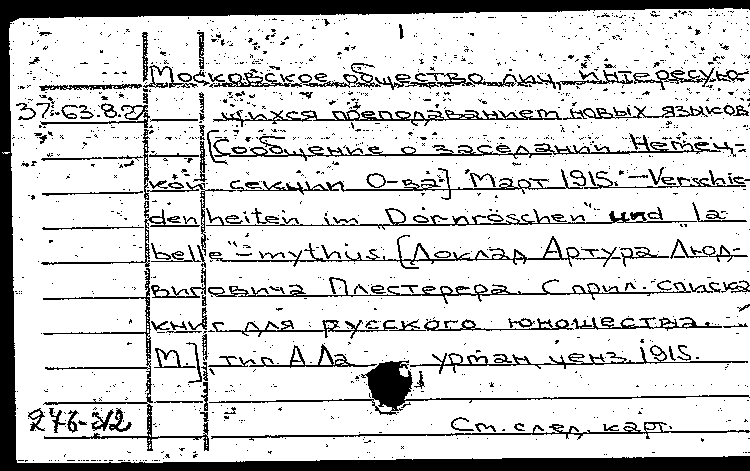 Московское общество лиц, интересую-
37-63.8.27 щихся преподаванием новых языков
[Сообщение о заседании Немец-
кой секции О-ва] Март 1915. – Verschie-
denheiten im "Dornröschen" und "la
belle" – mythus. [Доклад Артура Люд-
виговича Плестерера. С прил. списка
книг для русского юношества.
М.], тип А. Ла уртан, ценз. 1915.
276-312 См. след. карт.